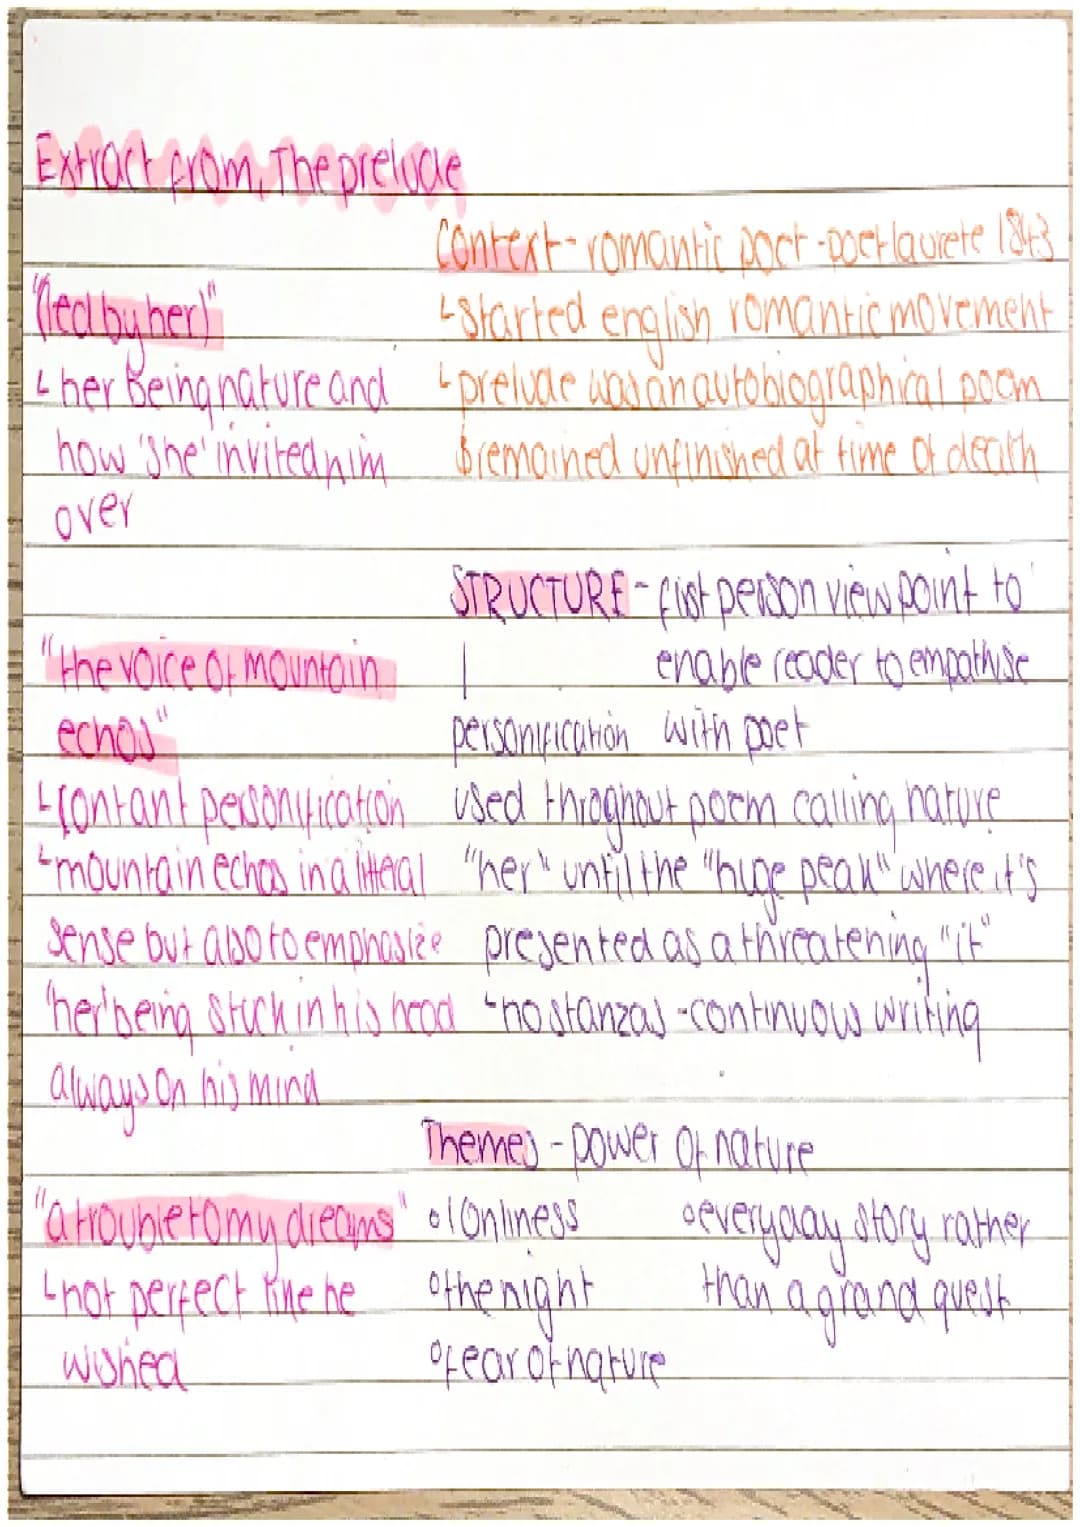 Extract from, The prelude
"(led by her)"
↳ her being nature and
how 'she' invited him
over
"the voice of mountain
echos"
↳ contant personification
↳ mountain echos in a litteral
sense but also to emphasize
'her' being stuck in his head
always on his mind
"a trouble to my dreams"
↳ not perfect like he
wished
Context - romantic poet - poet laurete 1843
↳ started english romantic movement
↳ prelude was an autobiographical poem
& remained unfinished at time of death
STRUCTURE - fist person view point to
enable reader to empathise
personification with poet
used throghout poem calling nature
"her" until the "huge peak" where it's
presented as a threatening "it"
↳ no stanzas - continuous writing
Themes - power of nature
o lonliness
o the night
o fear of nature
o everyday story rather
than a grand quest.